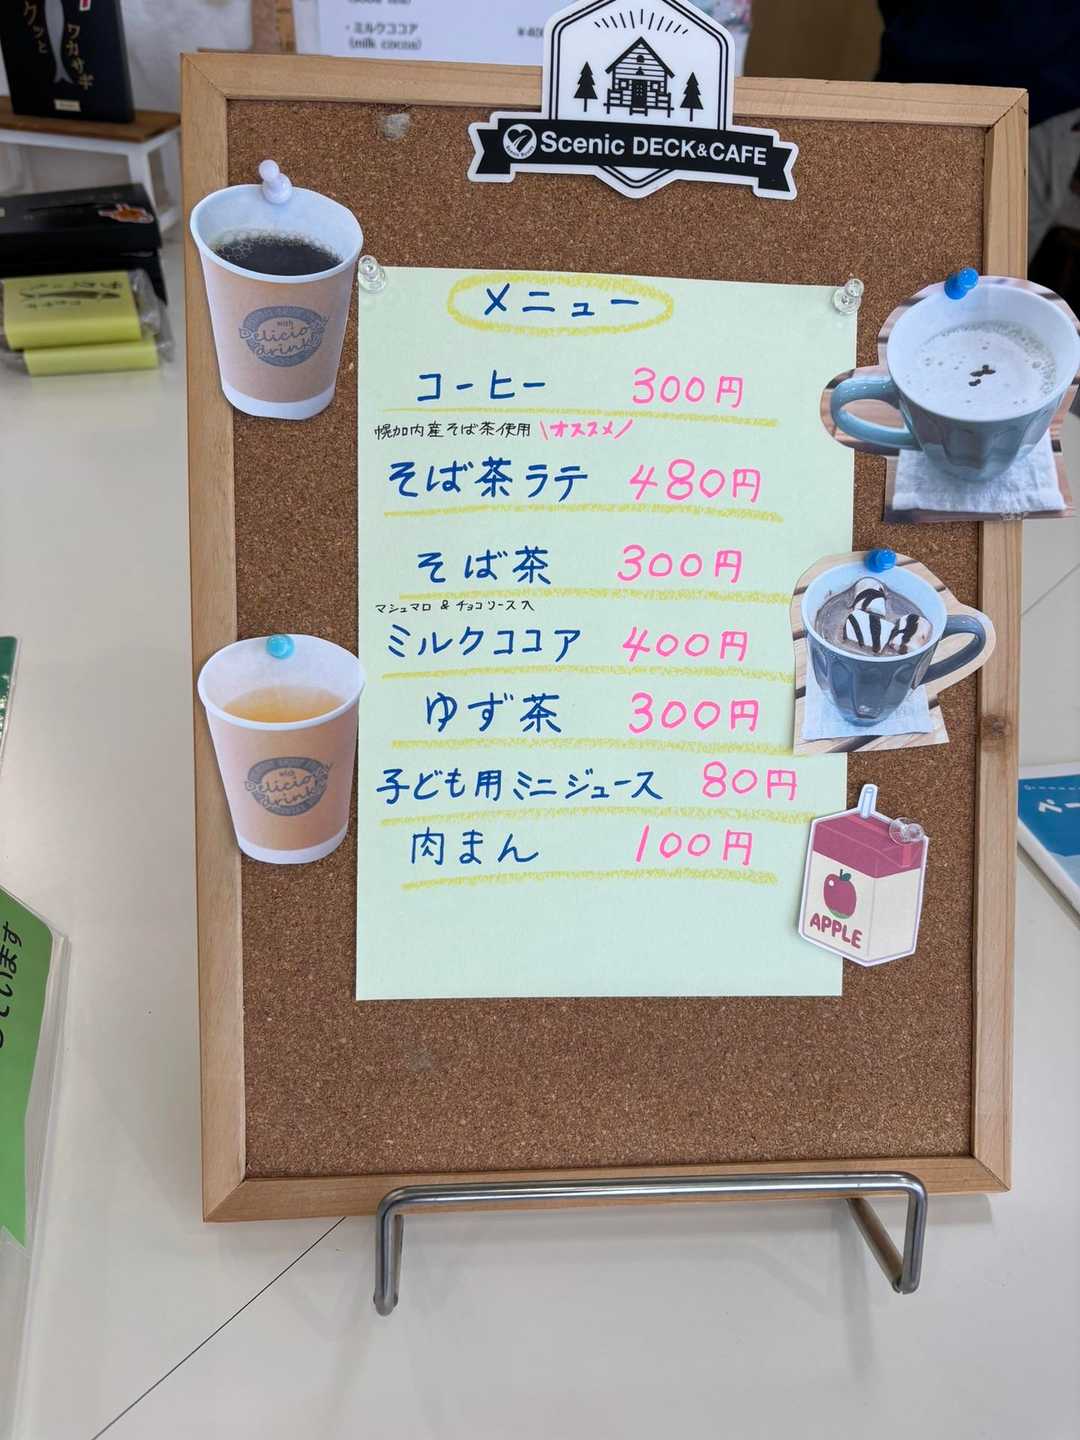 ・ミルクココア
(milk cocoa)
ワカサギ
Scenic DECK&CAFE
with
Delicious
drink
メニュー
コーヒー 300円
幌加内産そば茶使用 \オススメ/
そば茶ラテ 480円
そば茶 300円
マシュマロ & チョコソース入
ミルクココア 400円
ゆず茶 300円
子ども用ミニジュース 80円
肉まん 100円
with
Delicious
drink
APPLE
ています